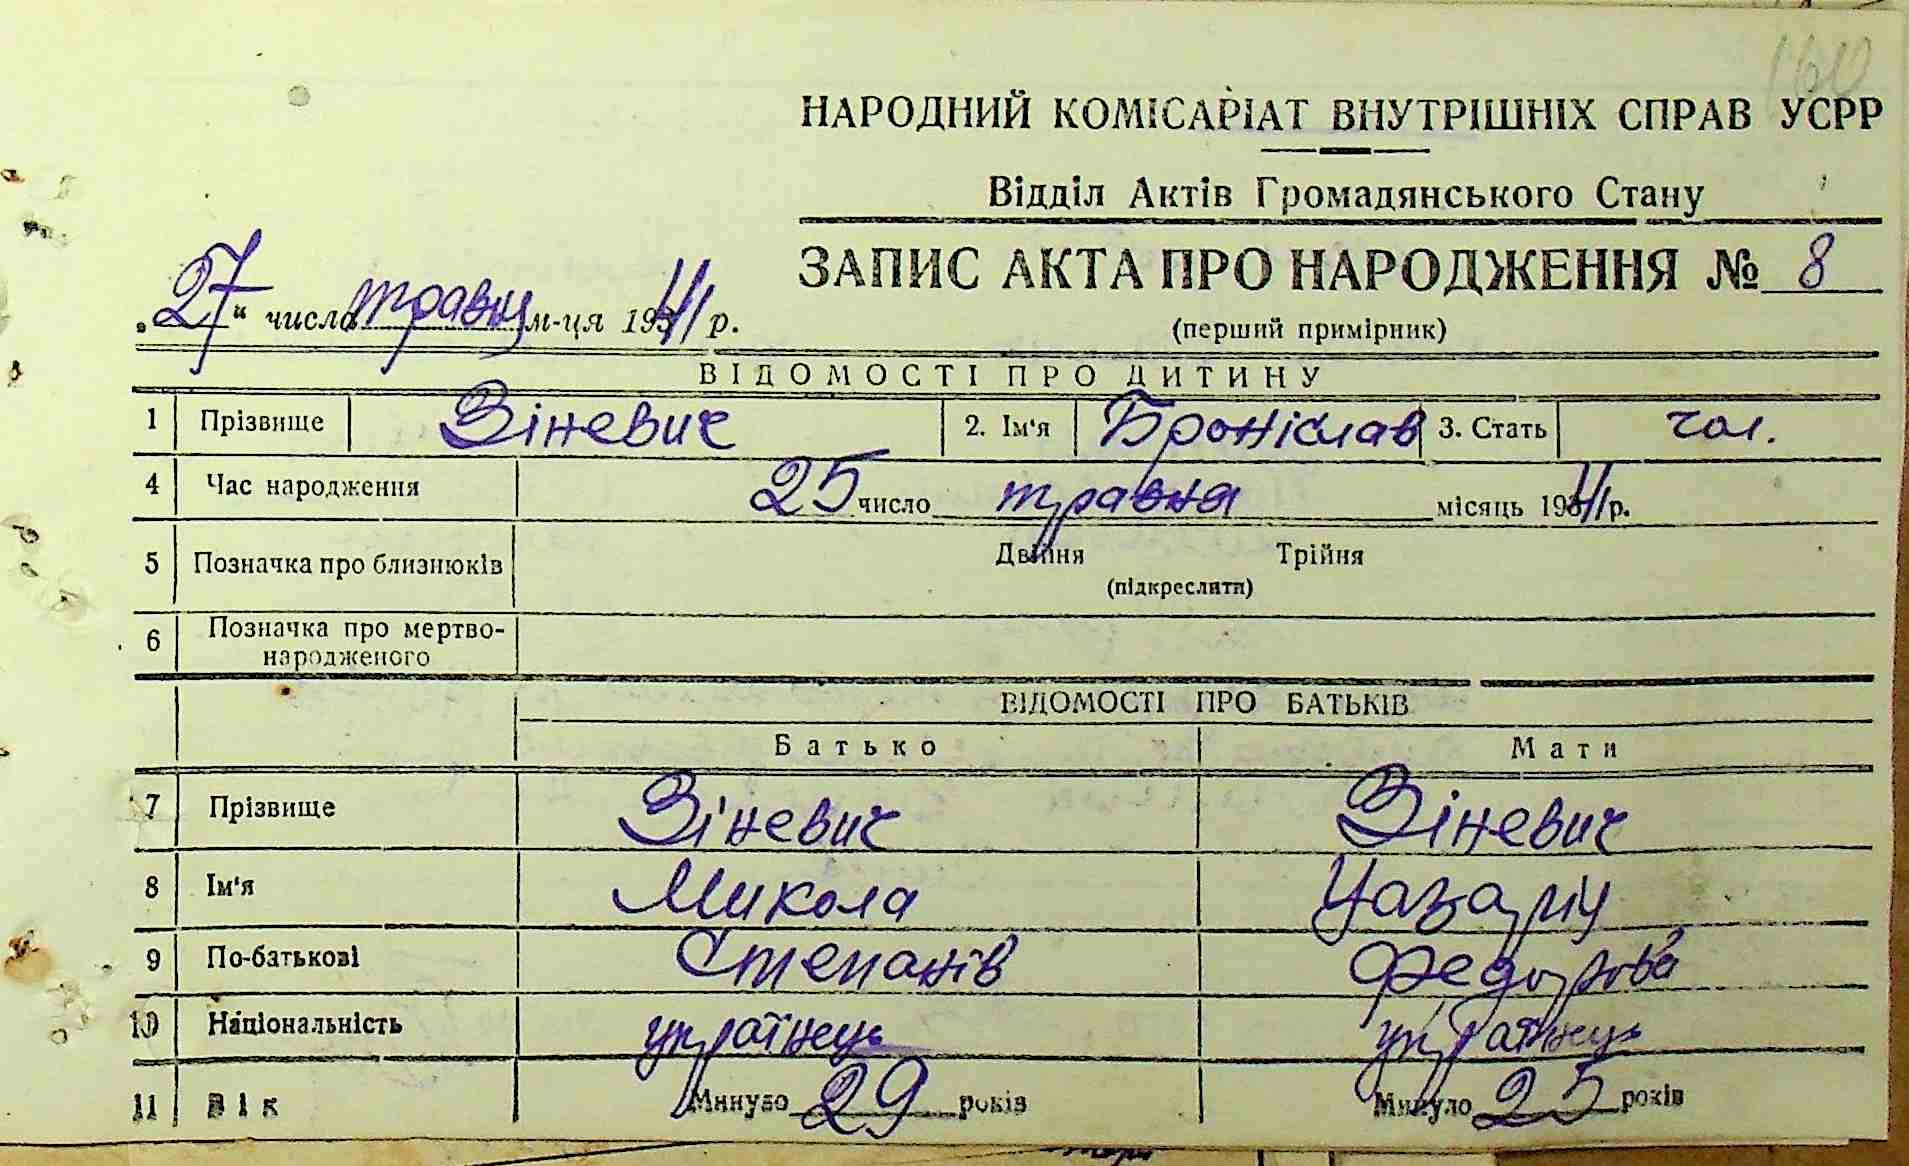 160
НАРОДНИЙ КОМІСАРІАТ ВНУТРІШНІХ СПРАВ УСРР
Відділ Актів Громадянського Стану
ЗАПИС АКТА ПРО НАРОДЖЕННЯ № 8
„27“ числа травня м-ця 1941 р.
(перший примірник)
ВІДОМОСТІ ПРО ДИТИНУ
1 Прізвище Зіневич 2. Ім'я Броніслав 3. Стать чол.
4 Час народження 25 число травня місяць 1941 р.
5 Позначка про близнюків Двійня Трійня
(підкреслити)
6 Позначка про мертво-
народженого
ВІДОМОСТІ ПРО БАТЬКІВ
Батько Мати
7 Прізвище Зіневич Зіневич
8 Ім'я Микола
9 По-батькові Степанів Федорова
10 Національність українець українець
11 Вік Минуло 29 років Минуло 25 років